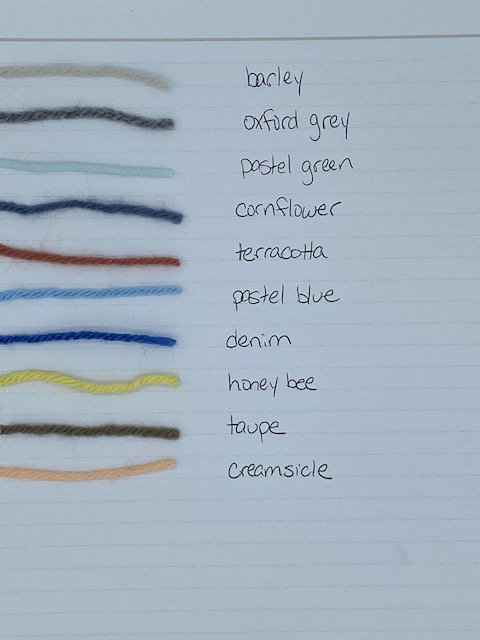 barley
oxford grey
pastel green
cornflower
terracotta
pastel blue
denim
honey bee
taupe
creamsicle